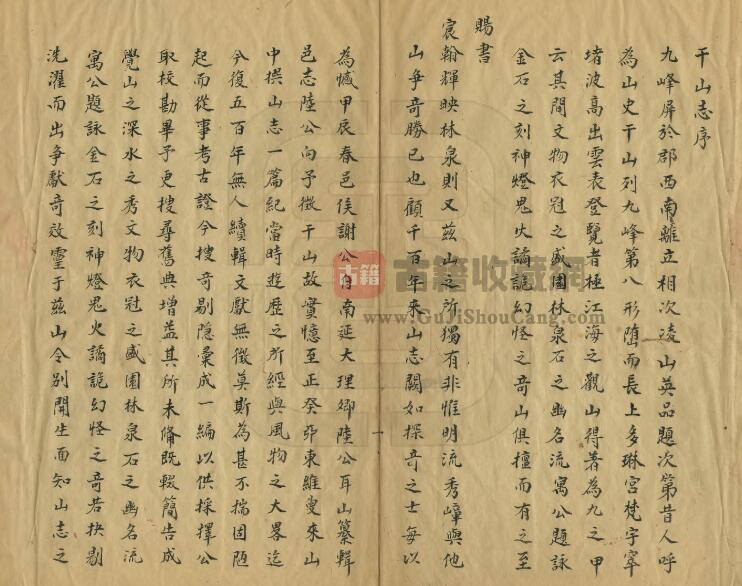 干山志序
九峰屏於郡西南離立相次凌山英品題次第昔人呼
為山史干山列九峰第八形隋而長上多琳宮梵宇窣
堵波高出雲表登覽者極江海之觀山得著為九之甲
云其間文物衣冠之盛園林泉石之幽名流寓公題詠
金石之刻神燈鬼火譎詭幻怪之奇山俱擅而有之至
賜書
宸翰輝映林泉則又茲山之所獨有非惟明流秀嶂與他
山爭奇勝已也顧千百年來山志闕如探奇之士每以
為憾甲辰春邑侯謝公自南延大理卿陸公耳山纂輯
邑志陸公向予徵干山故實憶至正癸卯東維叟來山
中撰山志一篇紀當時遊歷之所經與風物之大畧迄
今復五百年無人續輯文獻無徵莫斯為甚不揣固陋
起而從事考古證今搜奇剔隱彙成一編以供採擇公
取校勘畢予更搜尋舊典增益其所未備既輟簡告成
覺山之深水之秀文物衣冠之盛園林泉石之幽名流
寓公題詠金石之刻神燈鬼火譎詭幻怪之奇若抉剔
洗濯而出爭獻奇效靈于茲山令別開生面知山志之
古籍
古籍收藏网
www.GuJiShouCang.com